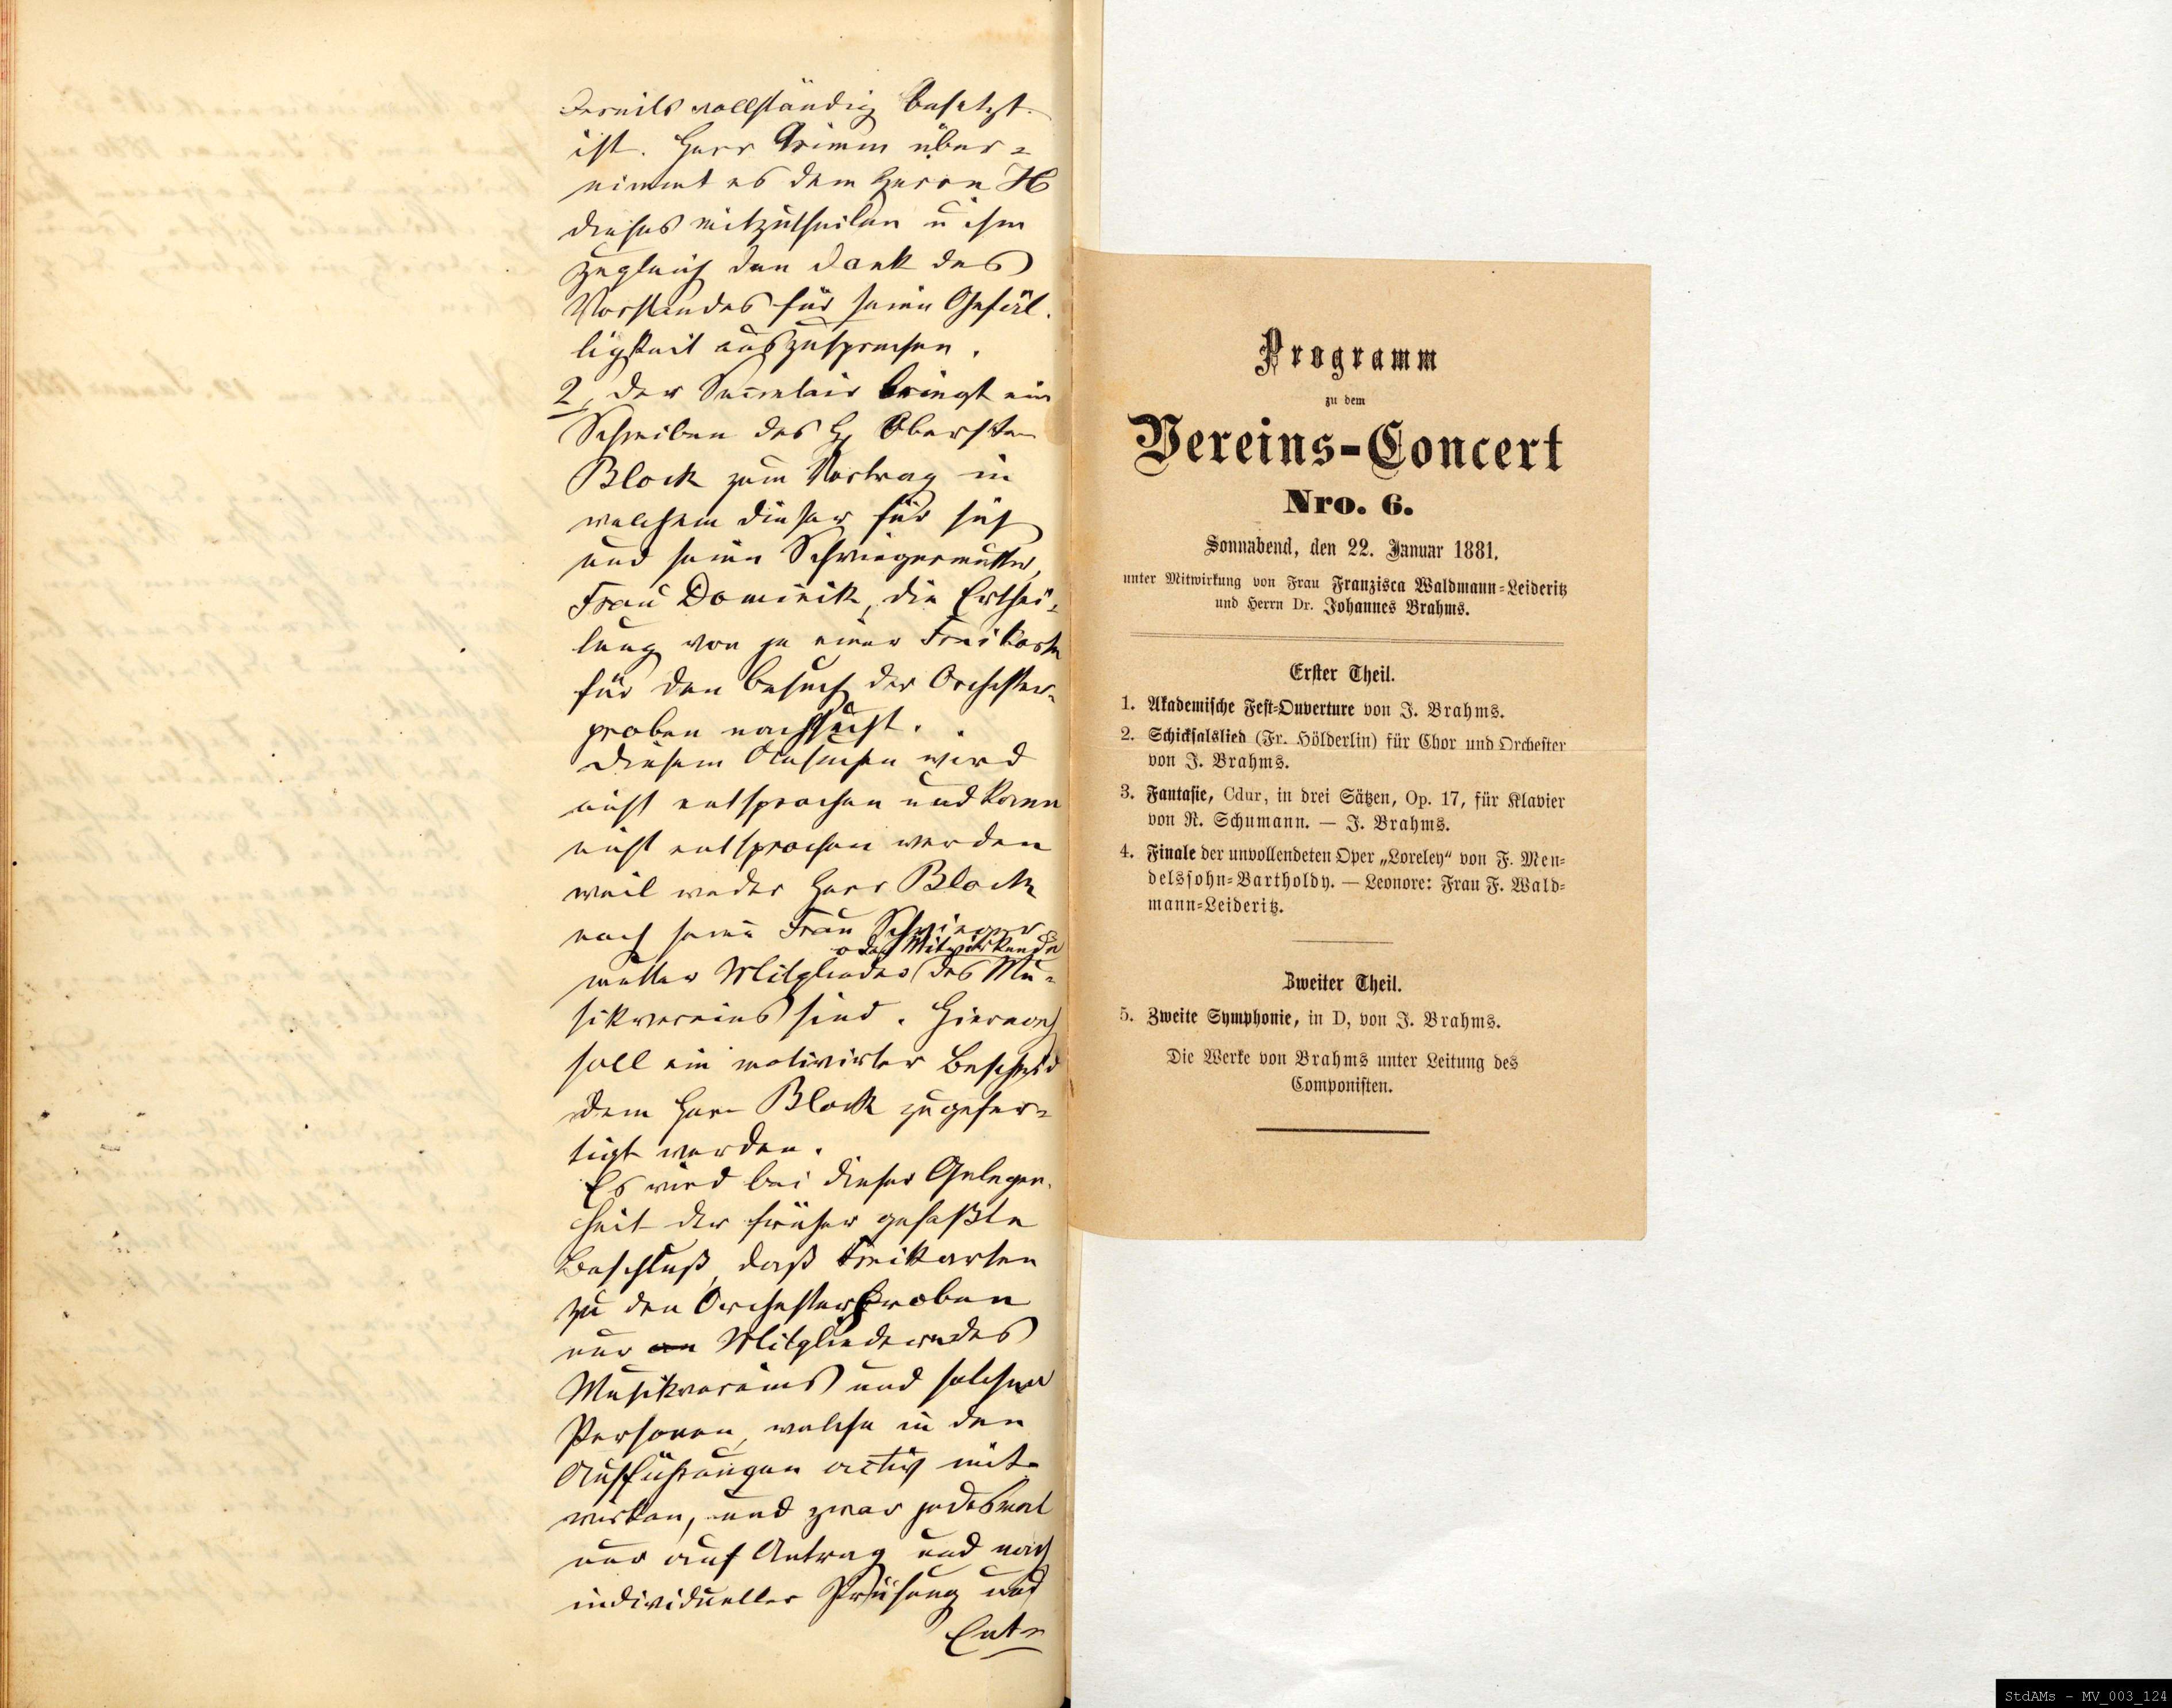 bereits vollständig besetzt
ist. Herr Grimm über-
nimmt es dem Herrn H
dieses mitzutheilen u ihm
zugleich den Dank des
Vorstandes für seine Gefäl-
ligkeit auszusprechen.
2, der Secretair bringt ein
Schreiben des H. Obersten
Block zum Vortrag in
welchem dieser für sich
und seine Schwiegermutter,
Frau Dominik, die Erthei-
lung von je einer Freikarte
für den Besuch der Orchester-
proben nachsucht.
Diesem Ansuchen wird
nicht entsprochen und kann
nicht entsprochen werden
weil weder Herr Block
noch seine Frau Schwieger
oder Mitwirkende
mutter Mitglieder (des Mu-
sikvereins sind. Hiernach
soll ein motivirter Bescheid
dem Herrn Block zugefer-
tigt werden.
Es wird bei dieser Gelegen-
heit der früher gefaßte
Beschluß, daß Freikarten
zu den Orchesterproben
nur an Mitgliedern des
Musikvereins und solchen
Personen, welche in den
Aufführungen activ mit-
wirken, und zwar jedesmal
nur auf Antrag und nach
individueller Prüfung und
Ent-
Programm
zu dem
Vereins-Concert
Nro. 6.
Sonnabend, den 22. Januar 1881.
unter Mitwirkung von Frau Franzisca Waldmann-Leideritz
und Herrn Dr. Johannes Brahms.
Erster Theil.
1. Akademische Fest-Ouverture von J. Brahms.
2. Schicksalslied (Fr. Hölderlin) für Chor und Orchester
von J. Brahms.
3. Fantasie, Cdur, in drei Sätzen, Op. 17, für Klavier
von R. Schumann. — J. Brahms.
4. Finale der unvollendeten Oper „Loreley“ von F. Men-
delssohn-Bartholdy. — Leonore: Frau F. Wald-
mann-Leideritz.
Zweiter Theil.
5. Zweite Symphonie, in D, von J. Brahms.
Die Werke von Brahms unter Leitung des
Componisten.
StdAMs - MV_003_124